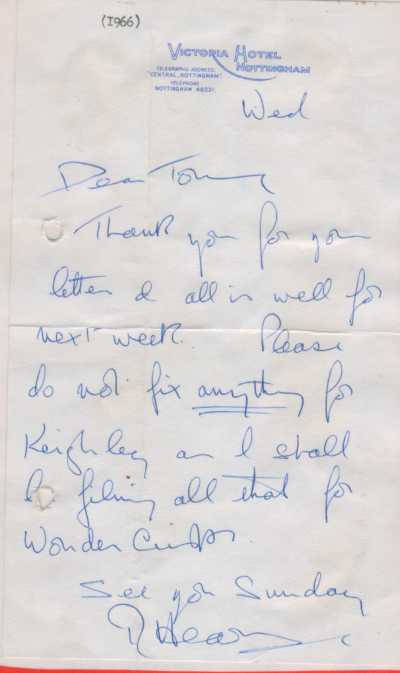 (1966)
VICTORIA HOTEL
NOTTINGHAM
TELEGRAPHIC ADDRESS:
"CENTRAL, NOTTINGHAM"
TELEPHONE
NOTTINGHAM 48231
Wed
Dear Tommy
Thank you for your
letter & all is well for
next week. Please
do not fix anything for
Keighley as I shall
be filming all that for
Wonder Crisps.
See you Sunday